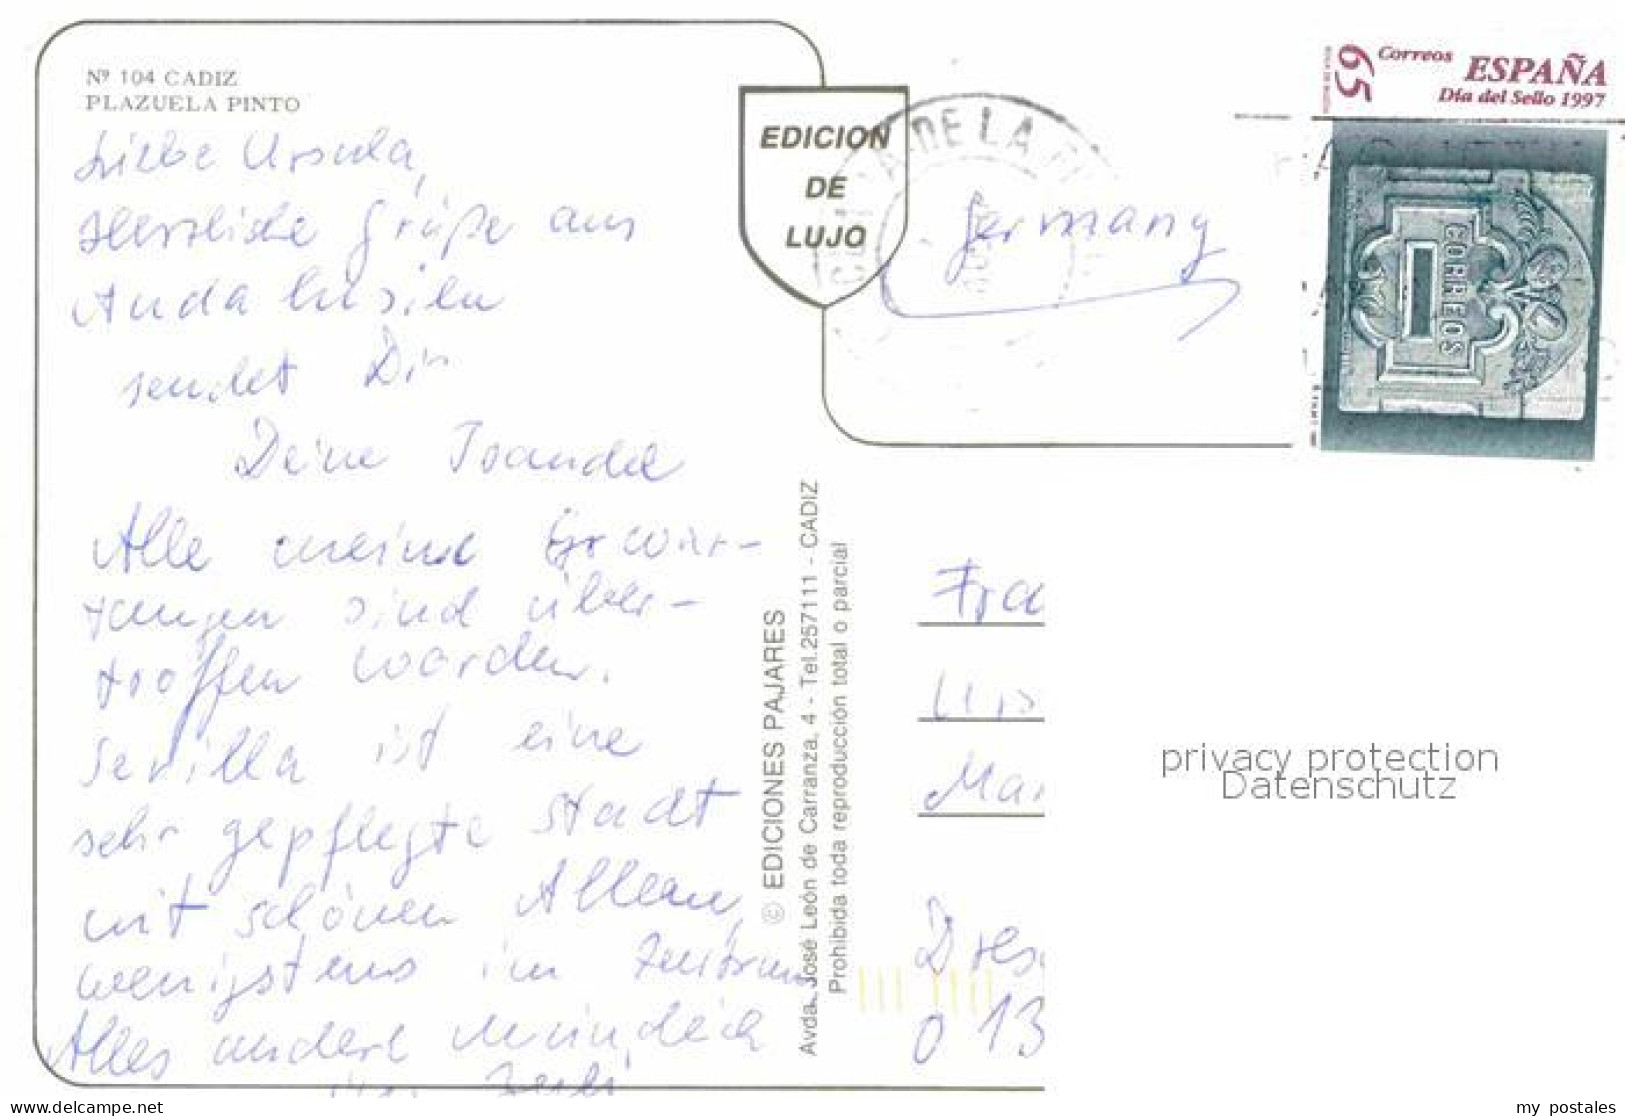 Nº 104 CADIZ
PLAZUELA PINTO
Liebe Ursula,
Herzliche Grüße aus
Andalusien
sendet Dir
Deine
Alle meine Erwar-
tungen sind über-
troffen worden.
Sevilla ist eine
sehr gepflegte Stadt
mit schönen Alleen,
wenigstens im Zentrum
Alles andere mündlich
EDICION
DE
LUJO
DE LA
Germany
65
Correos
ESPAÑA
Día del Sello 1997
CORREOS
© EDICIONES PAJARES
Avda. José León de Carranza, 4 - Tel.257111 - CADIZ
Prohibida toda reproducción total o parcial
Fra
Mar
Dres
013
privacy protection
Datenschutz
www.delcampe.net
my_postales